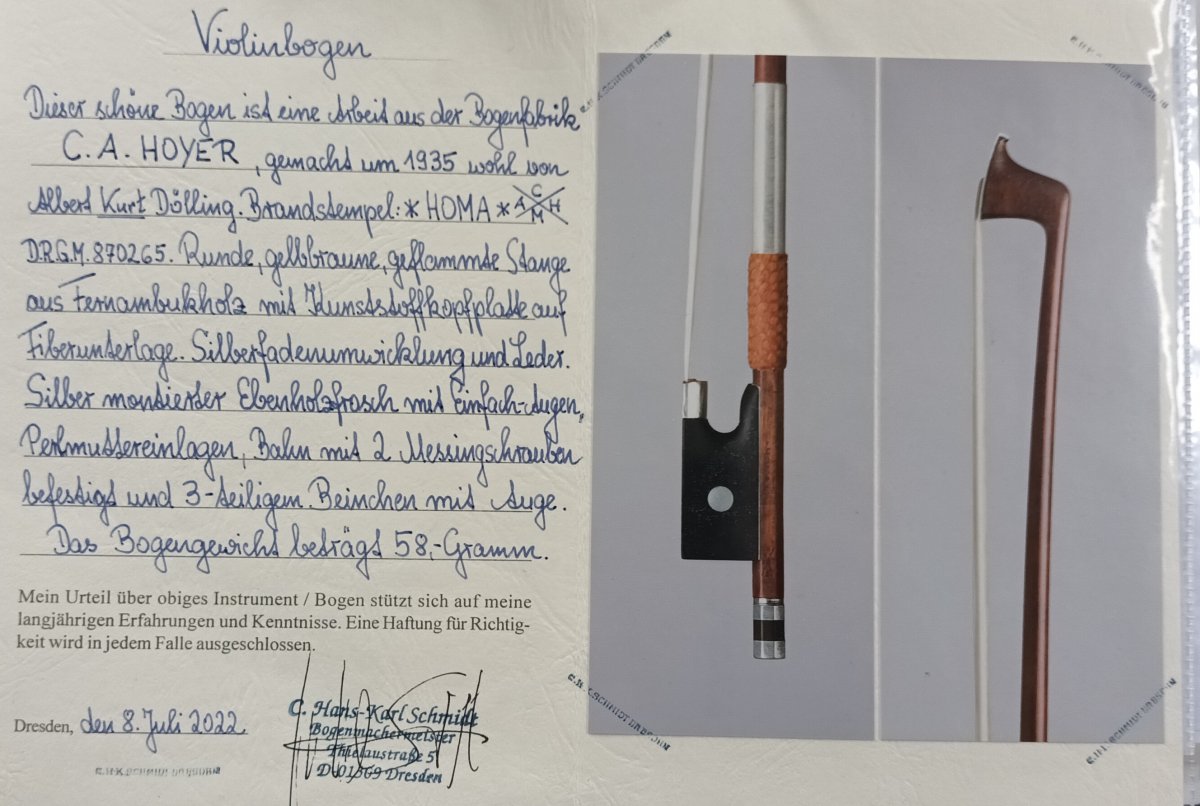 Violinbogen
Dieser schöne Bogen ist eine Arbeit aus der Bogenfabrik
C. A. HOYER, gemacht um 1935 wohl von
Albert Kurt Dölling. Brandstempel: * HOMA * A C H M
D.R.G.M. 870265. Runde, gelbbraune, geflammte Stange
aus Fernambukholz mit Kunststoffkopfplatte auf
Fiberunterlage. Silberfadenumwicklung und Leder.
Silber montierter Ebenholzfrosch mit Einfach-Augen,
Perlmuttereinlagen, Bahn mit 2 Messingschrauben
befestigt und 3-teiligem Beinchen mit Auge.
Das Bogengewicht beträgt 58,-Gramm.
Mein Urteil über obiges Instrument / Bogen stützt sich auf meine
langjährigen Erfahrungen und Kenntnisse. Eine Haftung für Richtig-
keit wird in jedem Falle ausgeschlossen.
Dresden, den 8. Juli 2022
C. Hans-Karl Schmidt
Bogenmachermeister
Thielaustraße 5
D-01369 Dresden
C.H.K.SCHMIDT DRESDEN
C.H.K.SCHMIDT DRESDEN
C.H.K.SCHMIDT DRESDEN
C.H.K.SCHMIDT DRESDEN
C.H.K.SCHMIDT DRESDEN